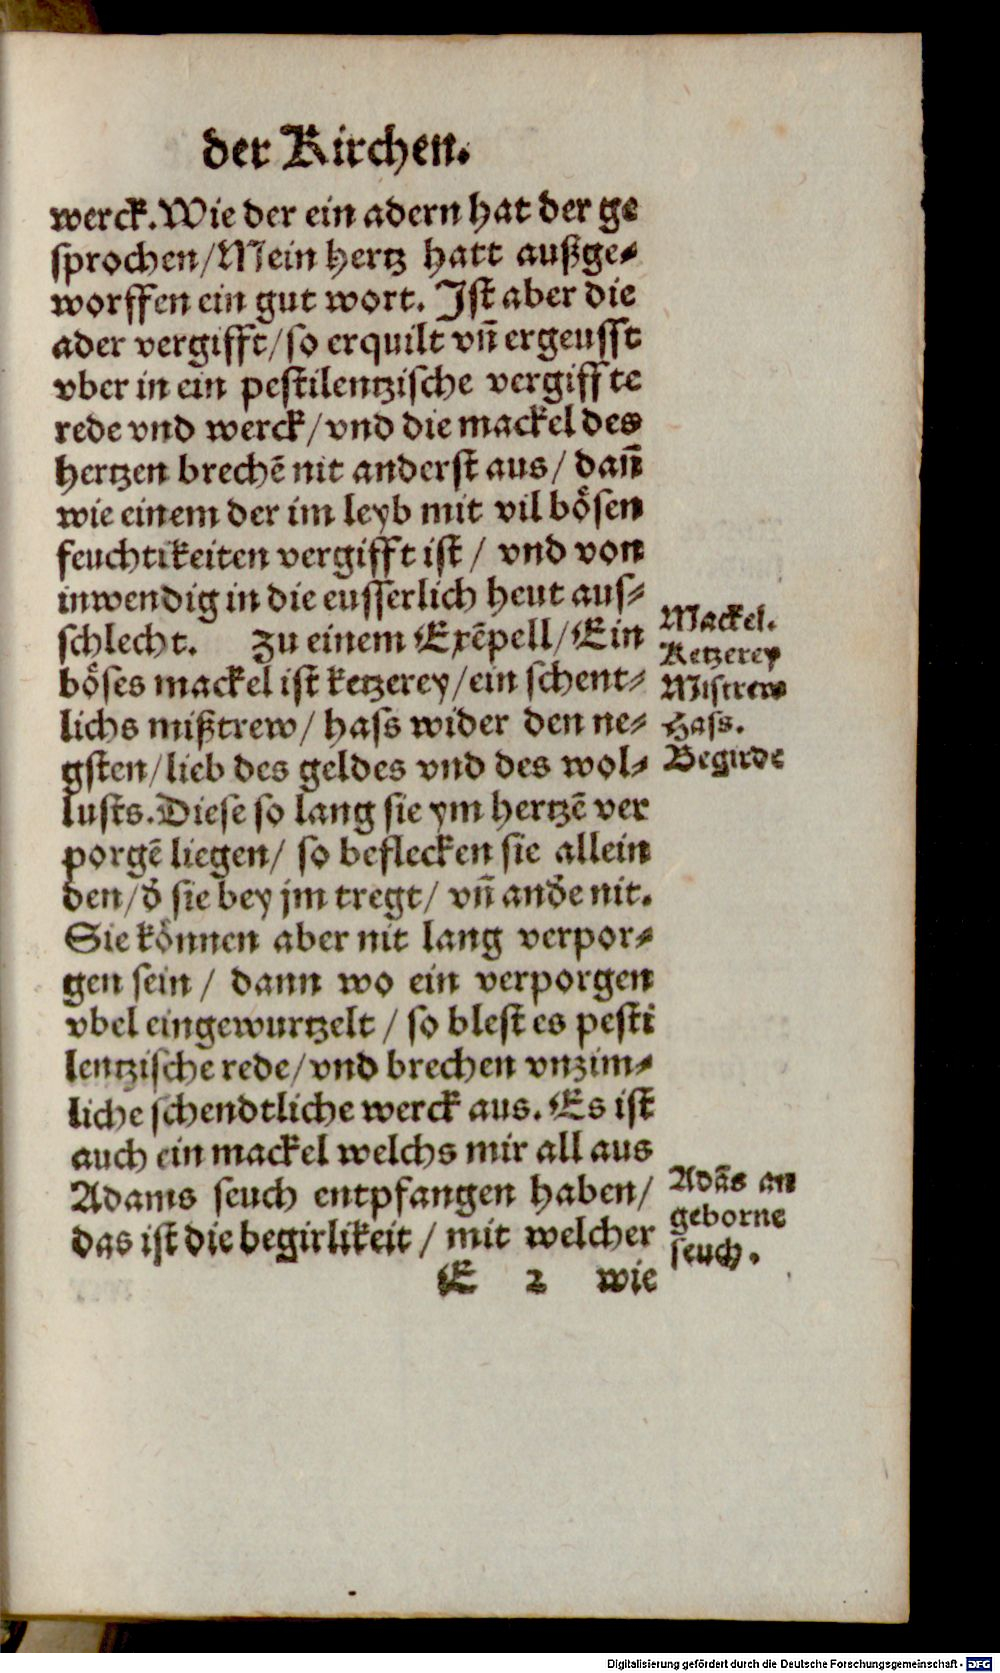 der Kirchen.
werck. Wie der ein adern hat der ge
sprochen/Mein hertz hatt außge⸗
worffen ein gut wort. Ist aber die
ader vergifft/so erquilt vñ ergeusst
vber in ein pestilentzische vergiffte
rede vnd werck/vnd die mackel des
hertzen brechẽ nit anderst aus/ dañ
wie einem der im leyb mit vil bösen
feuchtikeiten vergifft ist / vnd von
inwendig in die eusserlich heut aus⸗
schlecht. Zu einem Exẽpell/Ein
böses mackel ist ketzerey/ein schent⸗
lichs mißtrew/ hass wider den ne⸗
gsten/lieb des geldes vnd des wol⸗
lusts. Diese so lang sie ym hertzẽ ver
porgẽ liegen/ so beflecken sie allein
den/d̾ sie bey jm tregt/ vñ and̾e nit.
Sie können aber nit lang verpor⸗
gen sein / dann wo ein verporgen
vbel eingewurtzelt / so blest es pesti
lentzische rede/vnd brechen vnzim⸗
liche schendtliche werck aus. Es ist
auch ein mackel welchs mir all aus
Adams seuch entpfangen haben/
das ist die begirlikeit / mit welcher
E 2 wie
Mackel.
Ketzerey
Mistrew
Hass.
Begirde
Adãs an
geborne
seuch.
Digitalisierung gefördert durch die Deutsche Forschungsgemeinschaft - DFG